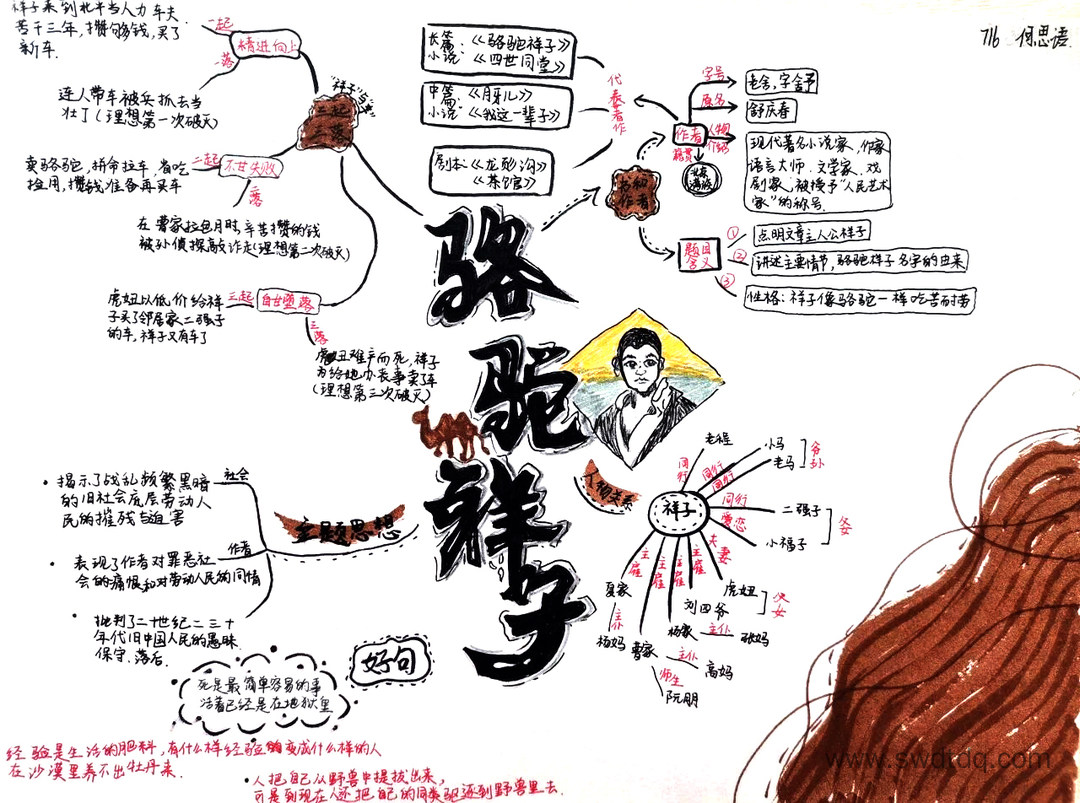 716 何思语
骆驼祥子
"祥子"与"车"
三起
三落
精进向上
一起
一落
祥子来到北平当人力车夫
苦干三年，攒够钱，买了
新车.
连人带车被兵抓去当
壮丁(理想第一次破灭)
不甘失败
二起
二落
卖骆驼，拼命拉车，省吃
俭用，攒钱准备再买车
在曹家拉包月时,辛苦攒的钱
被孙侦探敲诈走(理想第二次破灭)
自甘堕落
三起
三落
虎妞以低价给祥
子买了邻居家二强子
的车，祥子又有车了
虎妞难产而死，祥子
为给她办丧事卖了车
(理想第三次破灭)
书和
作者
作者
代表著作
长篇：《骆驼祥子》
小说：《四世同堂》
中篇：《月牙儿》
小说：《我这一辈子》
剧本：《龙须沟》
《茶馆》
字号
老舍，字舍予
原名
舒庆春
人物
介绍
现代著名小说家，作家
语言大师、文学家、戏
剧家，被授予"人民艺术
家"的称号.
籍贯
北京
满族
题目
含义
① 点明文章主人公祥子
② 讲述主要情节，骆驼祥子名字的由来
③ 性格：祥子像骆驼一样吃苦耐劳
人物关系
祥子
同行
老程
同行
小马
同行
老马
爷孙
同行
二强子
爱恋
小福子
父女
夫妻
虎妞
主雇
刘四爷
父女
主雇
杨家
主仆
张妈
主雇
曹家
主仆
高妈
师生
阮明
主雇
夏家
主仆
杨妈
主题思想
社会
• 揭示了战乱频繁黑暗
的旧社会底层劳动人
民的摧残与迫害
作者
• 表现了作者对罪恶社
会的痛恨和对劳动人民的同情
• 批判了二十世纪二三十
年代旧中国人民的愚昧
保守、落后.
好句
死是最简单容易的事
活着已经是在地狱里
经验是生活的肥料，有什么样经验的变成什么样的人
在沙漠里养不出牡丹来.
•人把自己从野兽中提拔出来，
可是到现在人还把自己的同类驱逐到野兽里去.
www.swdtdq.com